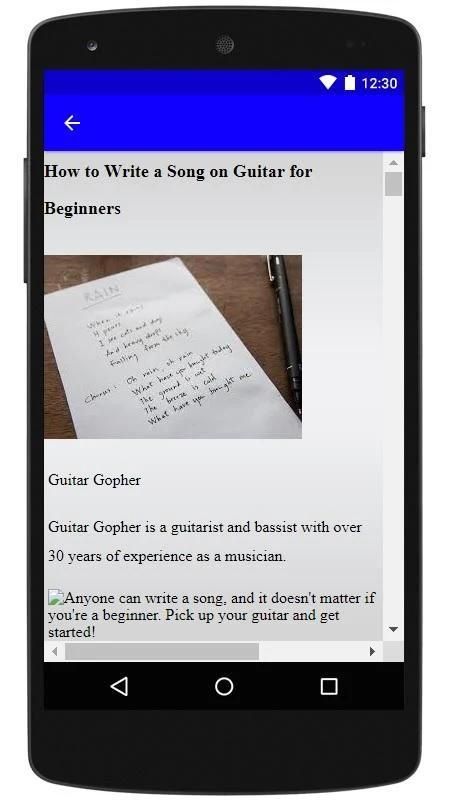 12:30
How to Write a Song on Guitar for
Beginners
RAIN
When it rains
It pours
I see cats and dog
And heavy drops
Falling from the sky
Chorus: Oh rain, oh rain
What have you bought today
The ground is wet
The breeze is cold
What have you brought me
Guitar Gopher
Guitar Gopher is a guitarist and bassist with over
30 years of experience as a musician.
Anyone can write a song, and it doesn't matter if
you're a beginner. Pick up your guitar and get
started!